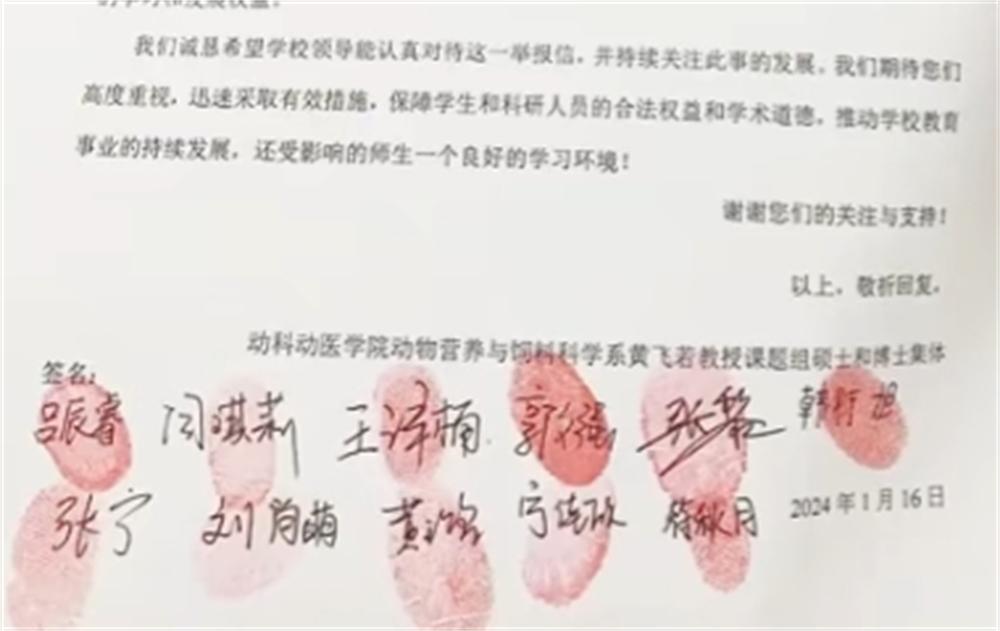 的学习和发展权益。
我们诚恳希望学校领导能认真对待这一举报信，并持续关注此事的发展。我们期待您们
高度重视，迅速采取有效措施，保障学生和科研人员的合法权益和学术道德，推动学校教育
事业的持续发展，还受影响的师生一个良好的学习环境！
谢谢您们的关注与支持！
以上，敬祈回复。
动科动医学院动物营养与饲料科学系黄飞若教授课题组硕士和博士集体
签名：
吕辰睿 闫琪莉 王泽楠 郭 强 张黎 韩
张宁 刘 萌 黄 宁 欣 符秋月
2024 年 1 月 16 日